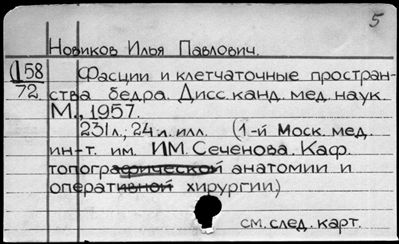 5
Новиков Илья Павлович.
158 Фасции и клетчаточные простран-
72 ства бедра. Дисс. канд. мед. наук
М., 1957.
231 л., 24 л. илл. (1-й Моск. мед.
ин-т. им. И.М. Сеченова. Каф.
топографической анатомии и
оперативной хирургии)
см. след. карт.